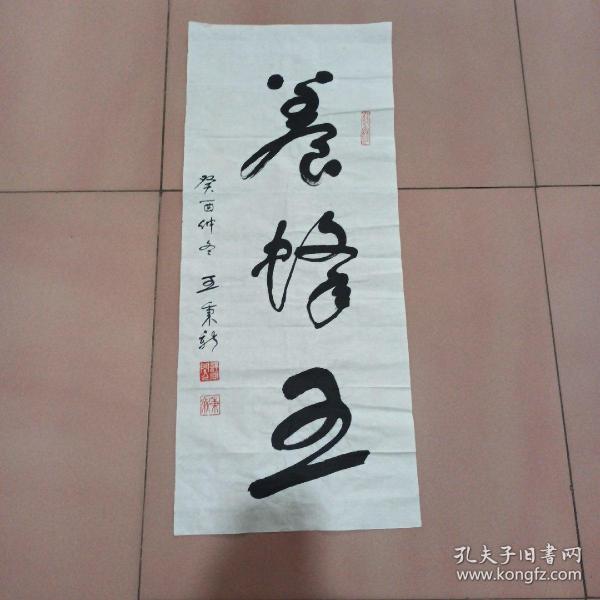 養蜂王
癸酉仲冬 王秉新
孔夫子旧書网
www.kongfz.com